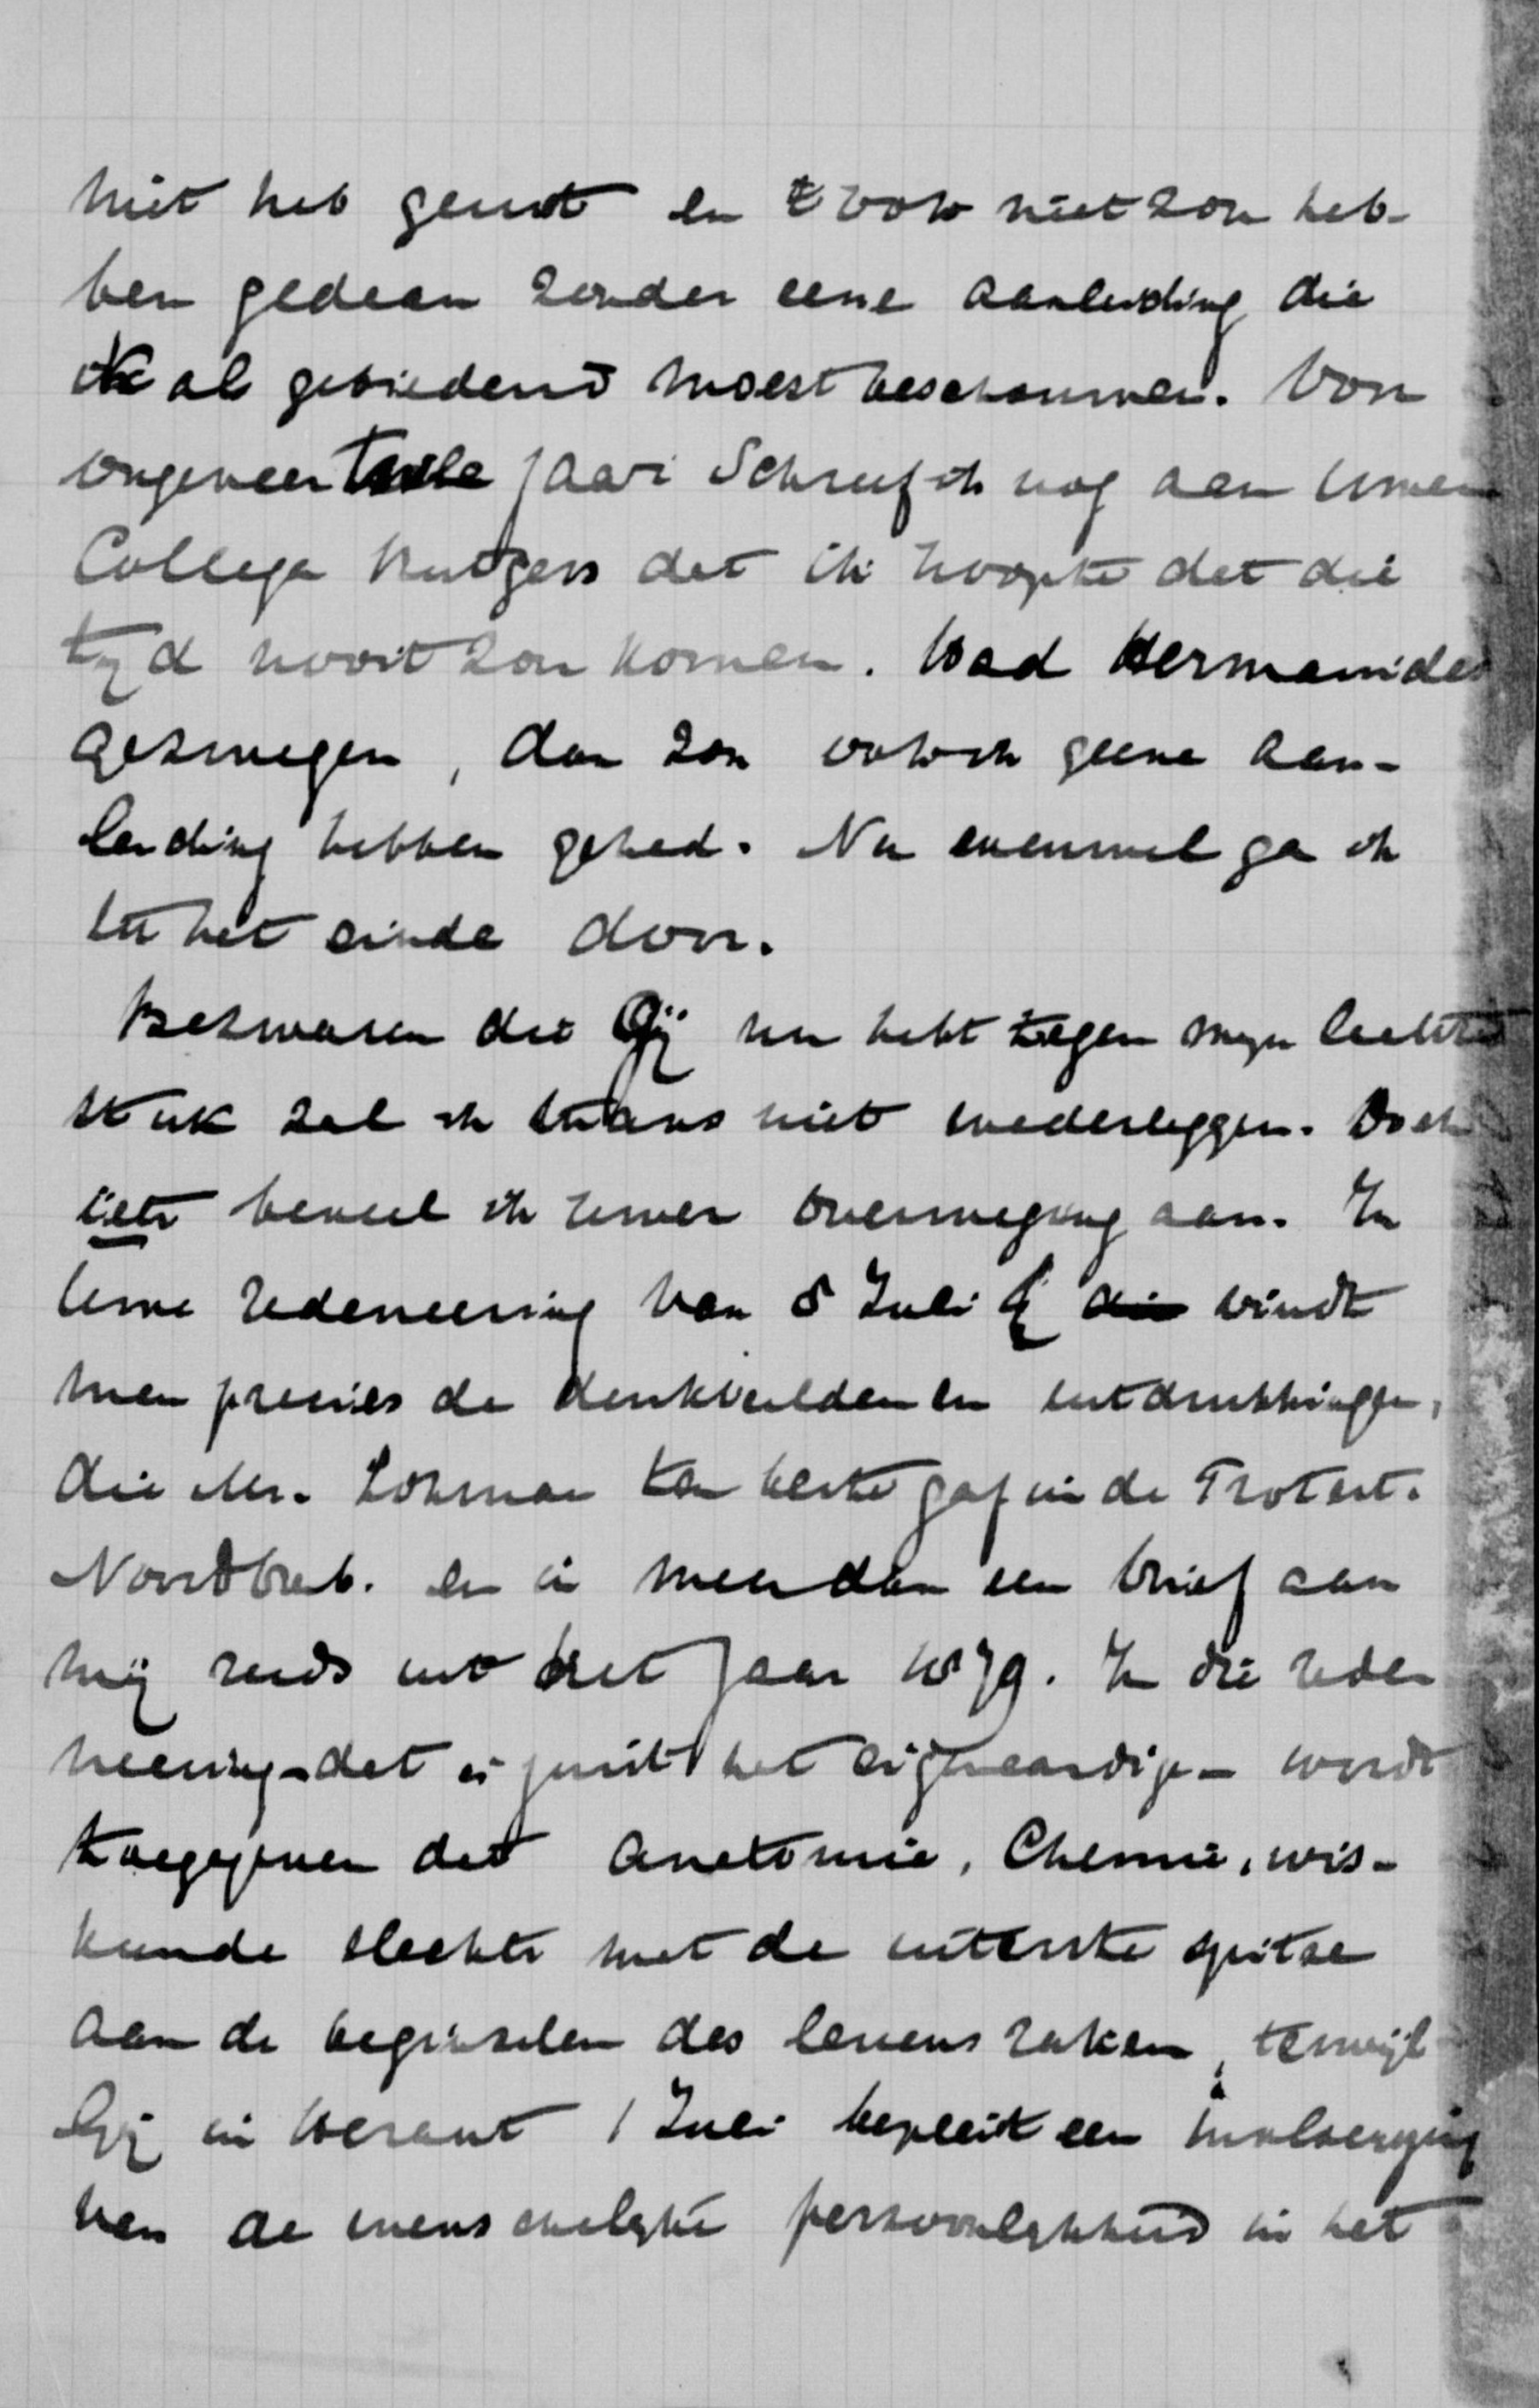 niet heb genit en 't ook niet zou heb-
ben gedaan zonder eene aanleiding die
ik als gebiedend moest beschouwen. Voor
ongeveer twee jaar schreef ik nog aan Uwen
Collega Rutgers dat ik hoopte dat die
tijd nooit zou komen. Had Hermanides
gezwegen, dan zou ook ik geene aan-
leiding hebben gehad. Nu evenwel ga ik
tot het einde door.
Bezwaren die Gij nu hebt tegen mijn laatste
stuk zal ik thans niet wederleggen. Doch
iets beveel ik Uwer overweging aan. In
Uwe redeneering van 8 Juli vindt
men precies de denkbeelden en uitdrukkingen,
die Mr. Lohman ten beste gaf in de Protest.
Noordbrab. en in meer dan een brief aan
mij reeds uit het jaar 1879. In die rede-
neering - dat is juist het eigenaardige - wordt
toegegeven dat Anatomie, Chemie, wis-
kunde slechts met de uiterste spitse
aan de beginselen des levens raken, terwijl
Gij in Heraut 1 Juli bepleit een
van de menschelijke persoonlijkheid in het